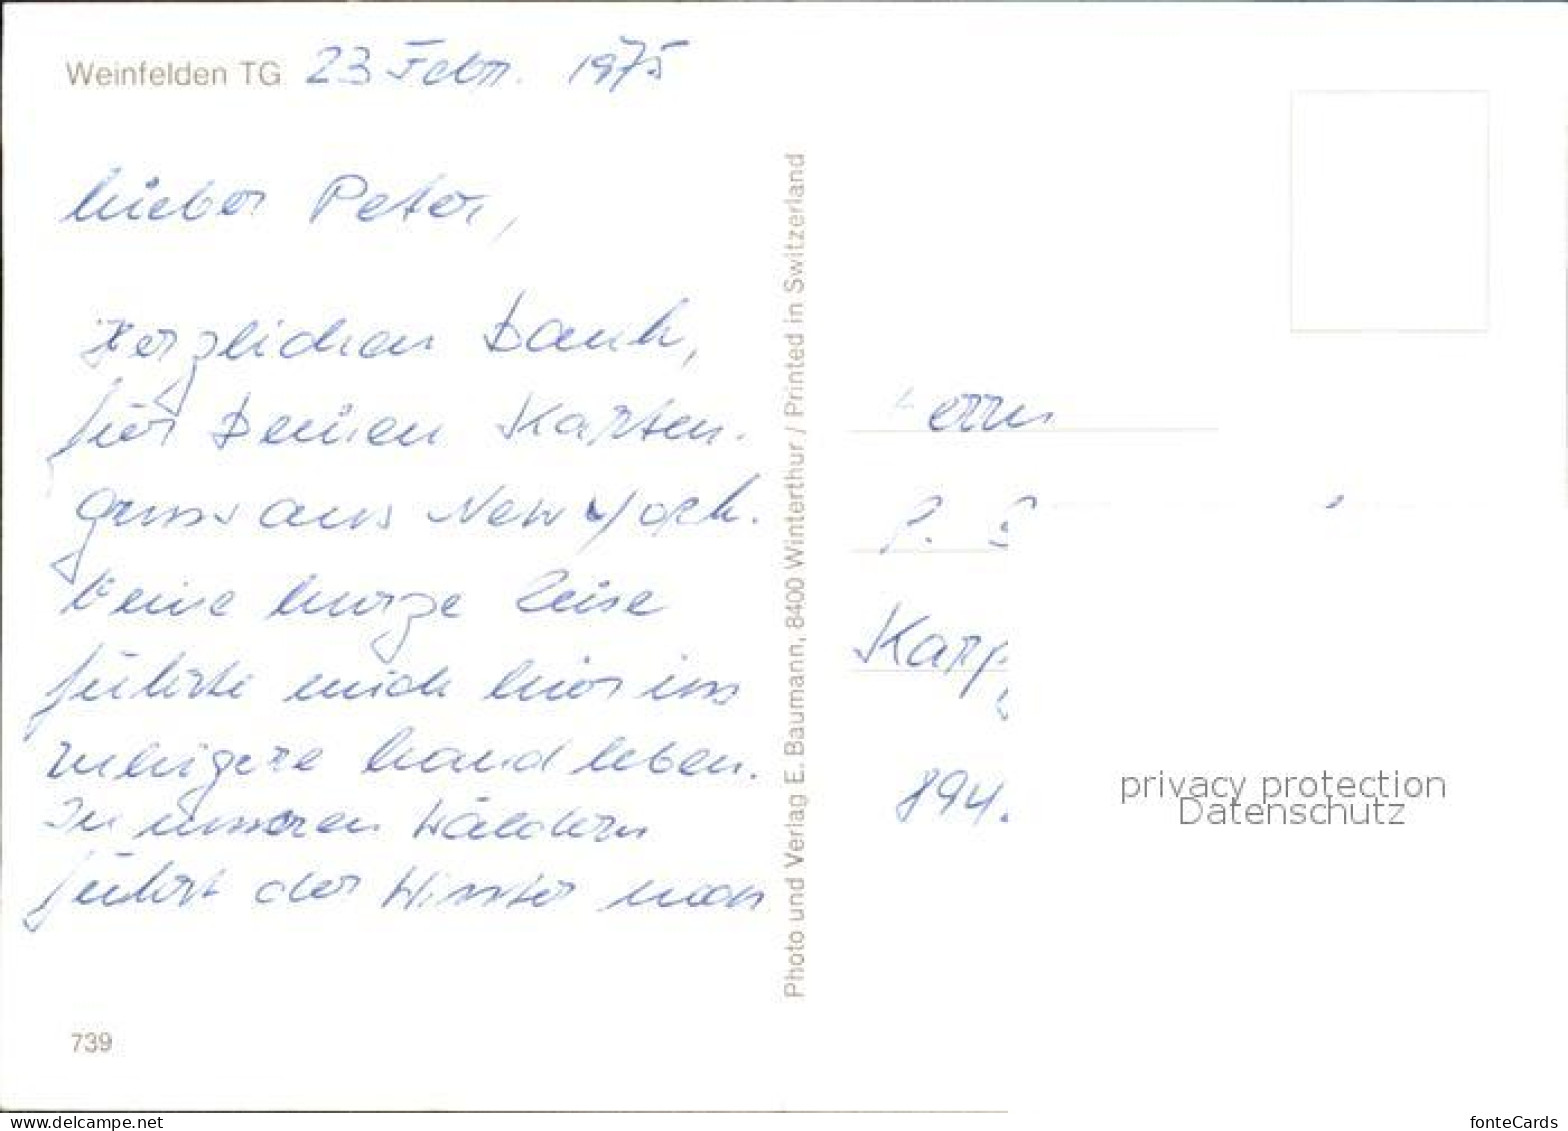 Weinfelden TG 23 Febr. 1975
Lieber Peter,
Herzlichen Dank,
für Deinen Karten-
gruss aus New York.
Eine kurze Reise
führte mich hier ins
ruhigere Landleben.
In unseren Wäldern
führt der Winter
739
Photo und Verlag E. Baumann, 8400 Winterthur / Printed in Switzerland
Herrn
P.
Karp
894.
privacy protection
Datenschutz
www.delcampe.net
fonteCards